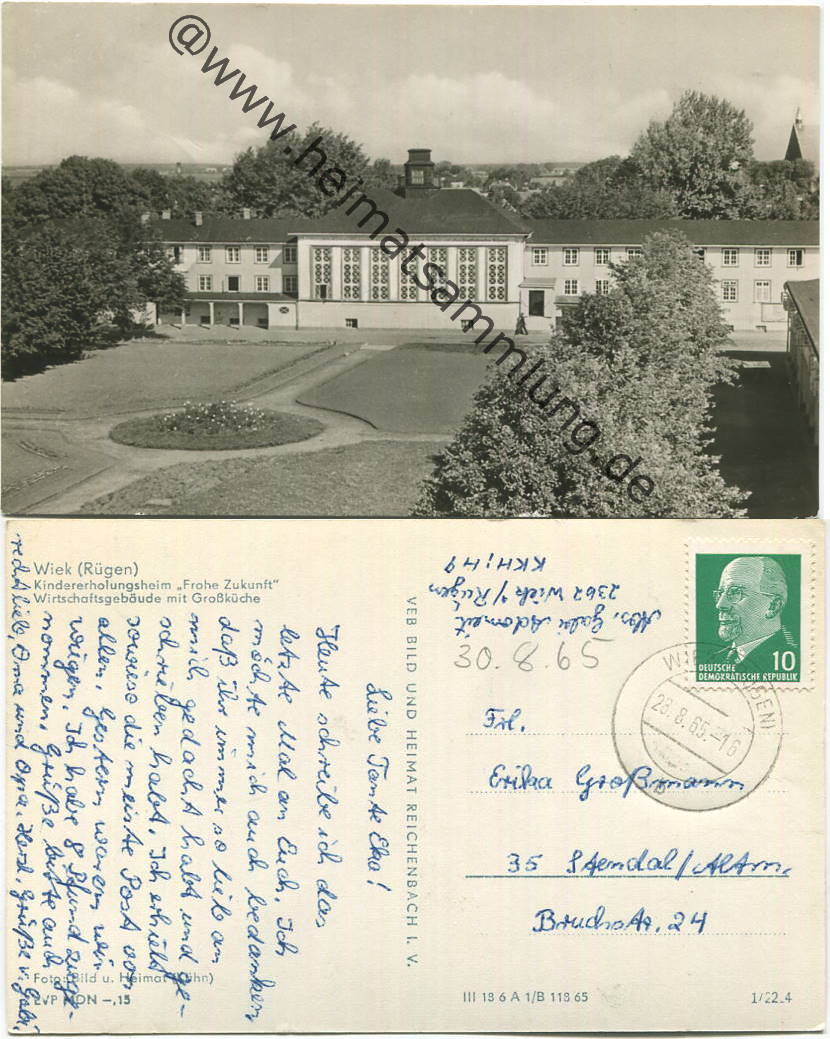 @www.heimatsammlung.de
Wiek (Rügen)
Kindererholungsheim „Frohe Zukunft"
Wirtschaftsgebäude mit Großküche
Liebe Tante Eka!
Heute schreibe ich das
letzte Mal an Euch. Ich
möchte mich auch bedanken
daß ihr immer so lieb an
mich gedacht habt und ge-
schrieben habt. Ich erhielt
sowieso die meiste Post von
allen. Gestern waren wir
wiegen. Ich habe 8 Pfund zuge-
nommen. Grüße bitte auch
recht lieb, Oma und Opa. Herzl. Grüße v. Gabi
Foto: Bild u. Heimat (Kühn)
EVP MDN -,15
VEB BILD UND HEIMAT REICHENBACH I. V.
Abs. Gabi Adomeit
2362 Wiek/Rügen
KKH; H 9
30.8.65
10
DEUTSCHE
DEMOKRATISCHE REPUBLIK
WIEK (RÜGEN)
28.8.65.-16
Frl.
Erika Großmann
35 Stendal/Altm.
Bruchstr. 24
III 18 6 A 1/B 118 65